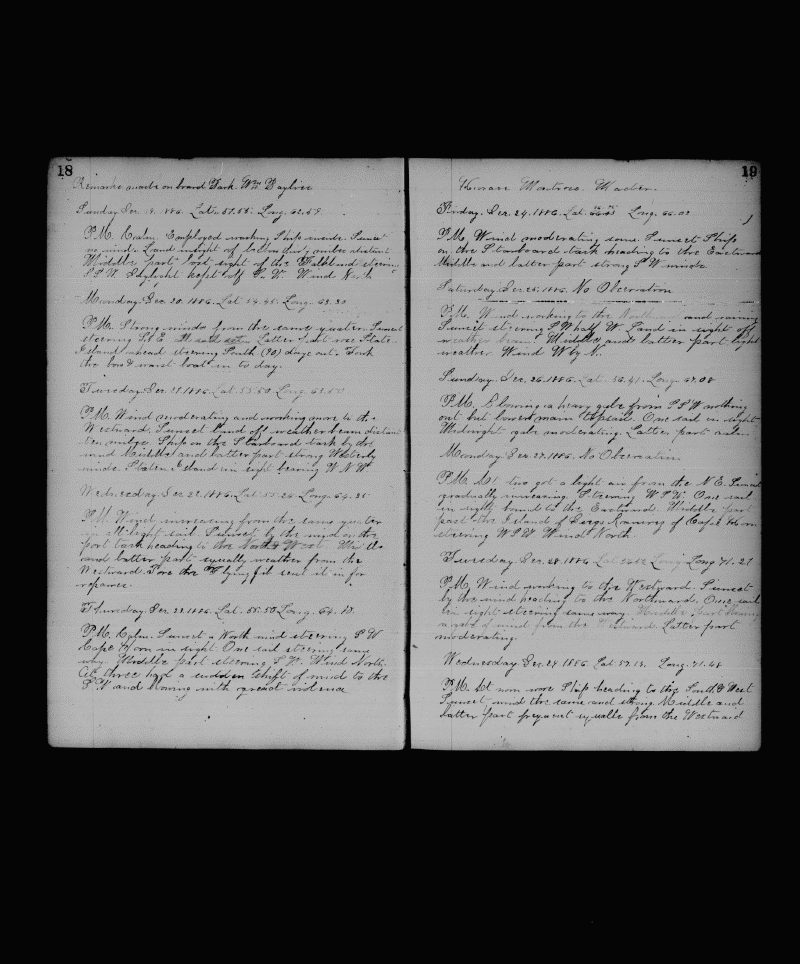 18
Remarks made on board Bark. Wm Baylies
Sunday Dec 19. 1886. Lat. 51.55. Long. 62.59.
P.M. Calm. Employed working Ship inside. Sunset
no wind. Land in sight of miles distant
Middle part lost sight of the Falkland steering
S.S.W. Daylight kept off S. W. Wind North
Monday Dec 20. 1886. Lat 54.45. Long. 63.30
P.M. Strong winds from the same quater. Sunset
steering S by E. Latter part saw State
Island ahead steering South (90) days out. Took
the bow & waist boat in to day.
Tuesday Dec 21. 1886. Lat. 55.50 Long. 63.50
P.M. Wind moderating and working more to the
Westward. Sunset land off weather beam distant
ten miles. Ship on the Starboard tack by the
wind Middle and latter part strong Westerly
winds. Staten Island in sight bearing W N W
Wednesday Dec 22. 1886. Lat. 55.26. Long. 64.35
P.M. Wind increasing from the same quater
in all light sail. Sunset by the wind on the
port tack heading to the North & West. Middle
and latter part squally weather from the
Westward. Tore the Flying jib sent it in for
repaires.
Thursday Dec 23. 1886. Lat. 55.50 Long. 64.
P.M. Calm. Sunset a North wind steering S W
Cape Horn in sight. One sail steering same
way. Middle part steering S.W. Wind North.
At three had a sudden shift of wind to the
S W and blowing with great violence
19
Master.
Friday. Dec. 24. 1886. Lat. Long. 66.02
P.M. Wind moderating some. Sunset Ship
on the Starboard tack heading to the Eastward
Middle and latter part strong S W winds.
Saturday. Dec 25. 1886. No Observation
P.M. Wind working to the and raining
Sunset steering S W half W. Land in sight off
weather beam. Middle and latter part light
weather. Wind W by N.
Sunday. Dec. 26. 1886. Lat. 56.41. Long. 67.08
P.M. Blowing a heavy gale from S S W nothing
out but lower main topsail. One sail in sight.
Midnight gale moderating. Latter part calm.
Monday Dec. 27. 1886. No Observation
P.M. At two got a light air from the N E. Sunset
gradually increasing. Steering W S W. One sail
in sight bound to the Eastward. Middle part
past the Island of Diego Ramirez off Cape Horn
steering W S W Wind North.
Tuesday Dec. 28. 1886. Lat Long 71.21
P.M. Wind working to the Westward. Sunset
by the wind heading to the Northward. One sail
in sight steering same way. Middle part
of wind from the Westward. Latter part
moderating.
Wednesday Dec 29 1886 Lat 57.13. Long. 71.48
P.M. At noon wore Ship heading to the South & West
Sunset wind the same and strong. Middle and
latter part frequent squalls from the Westward